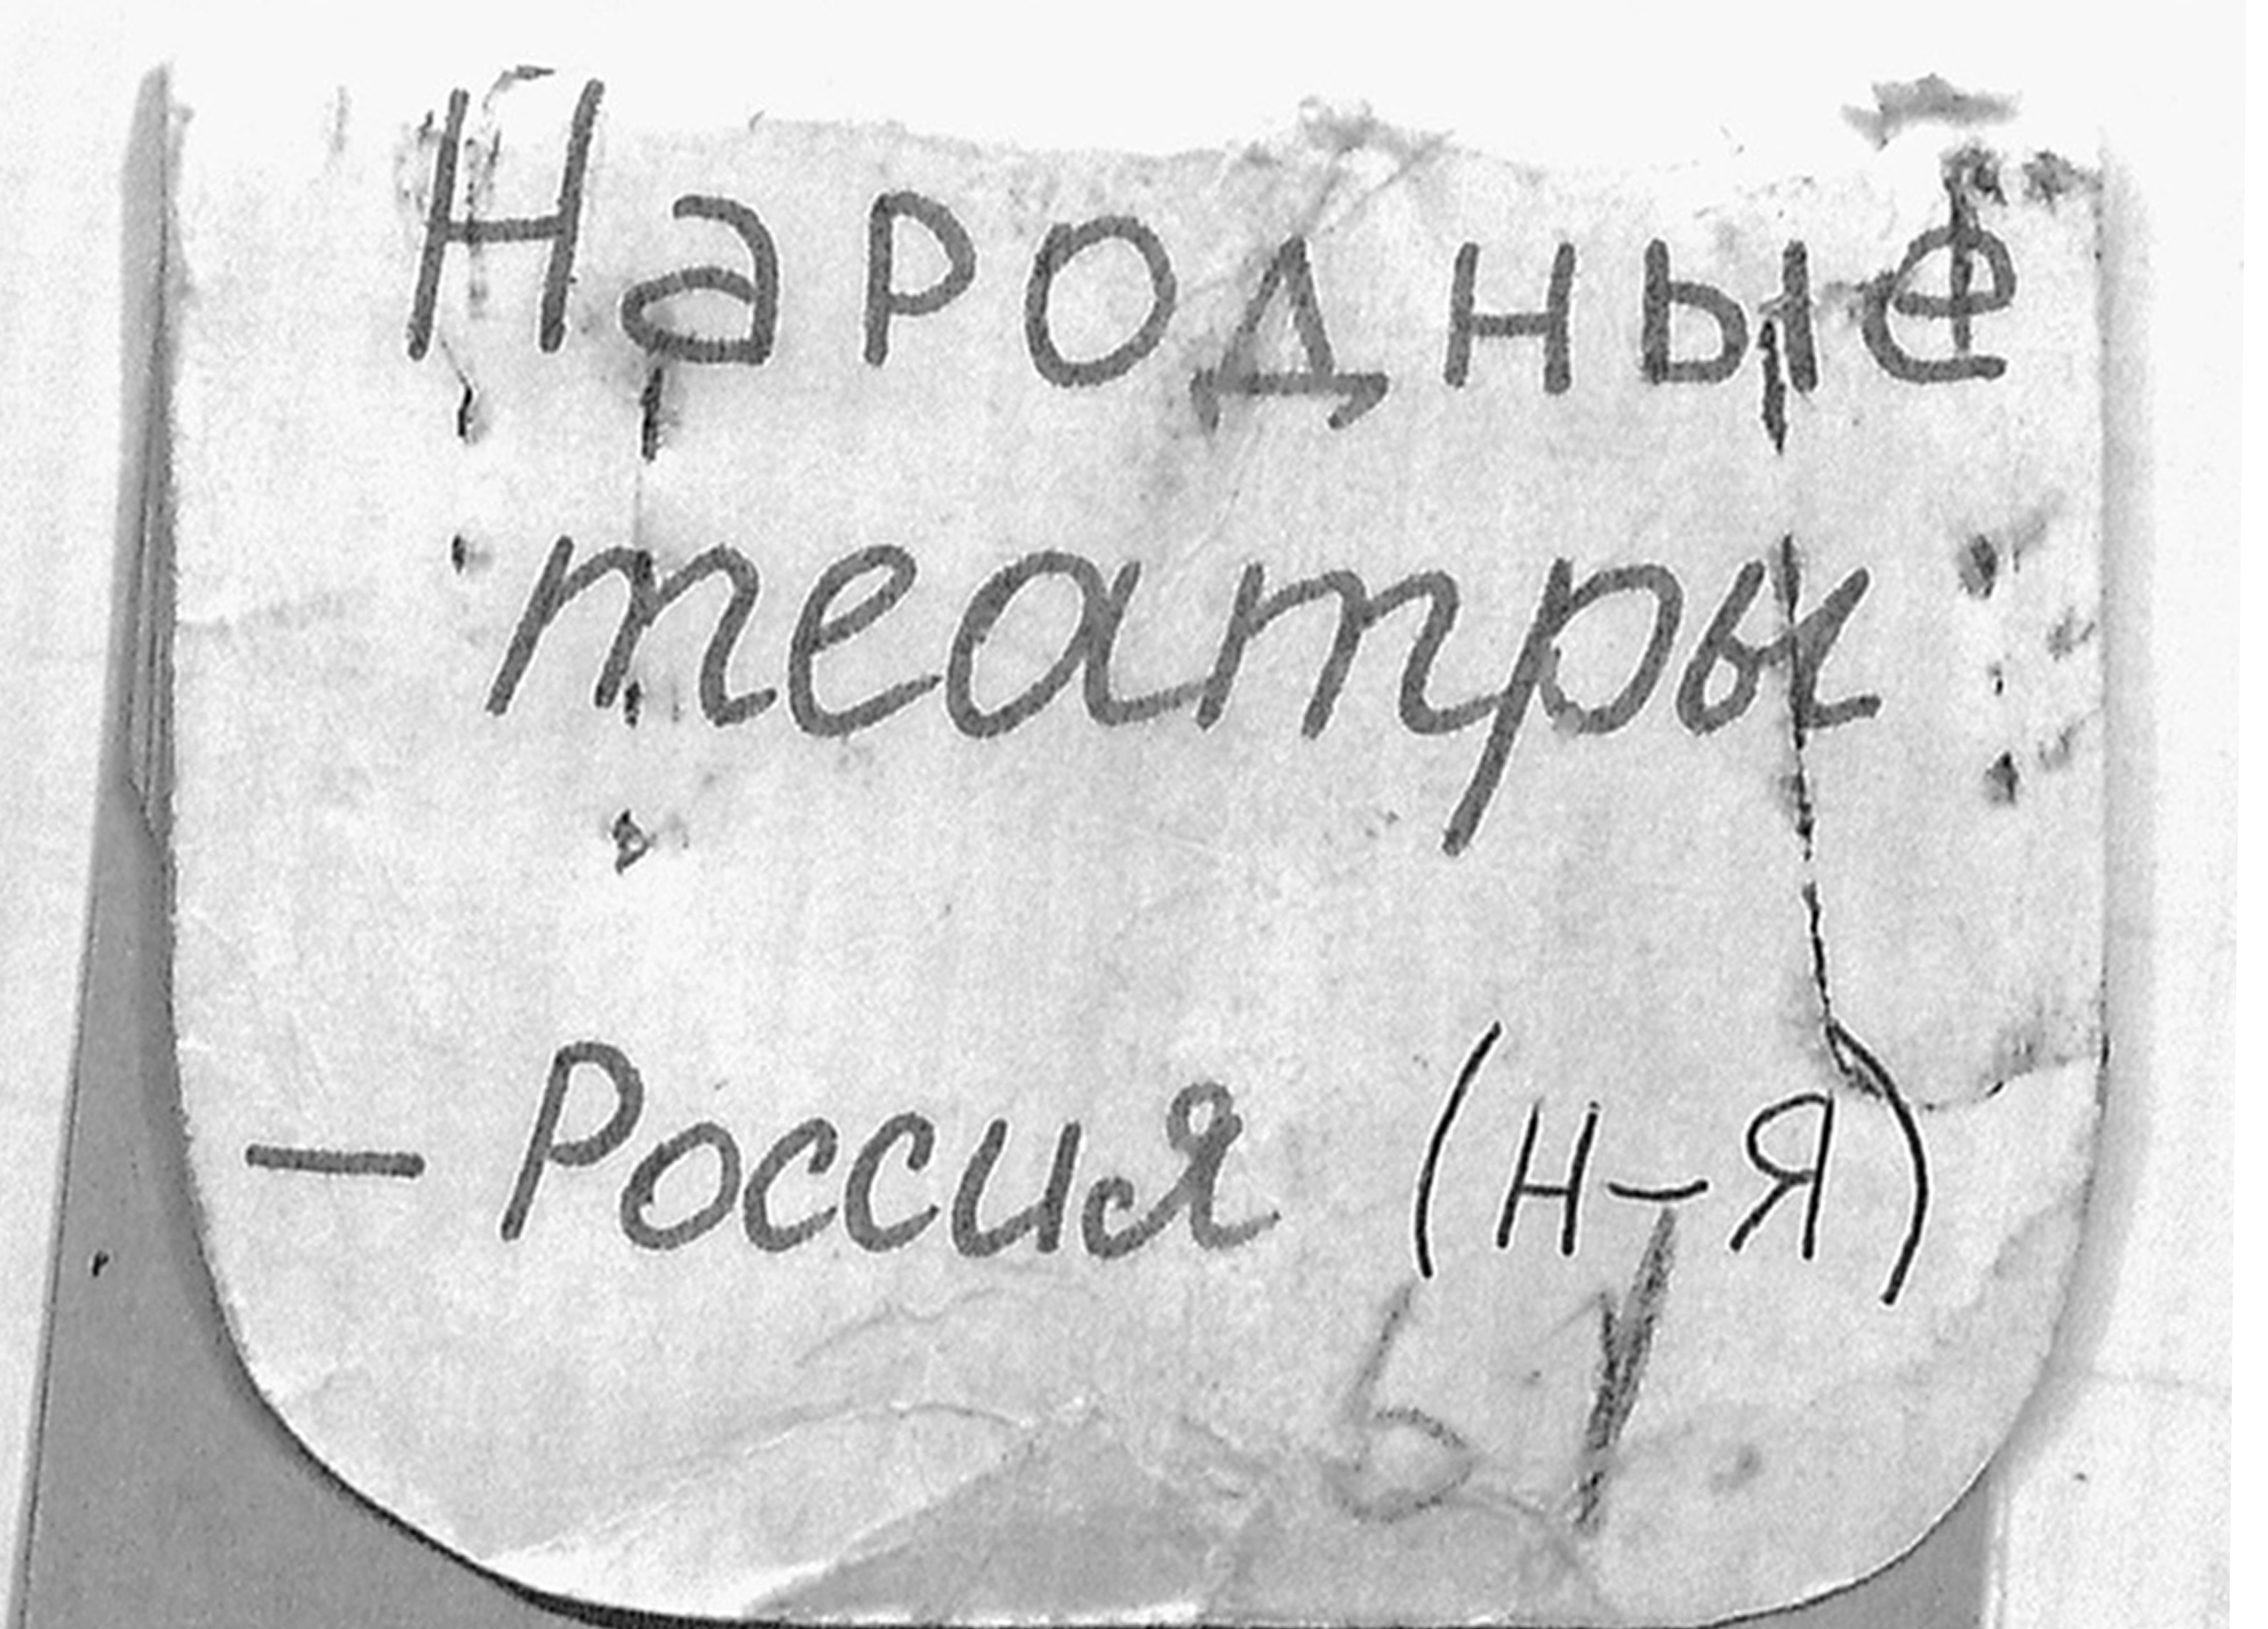 Народные
театры
— Россия (Н–Я)